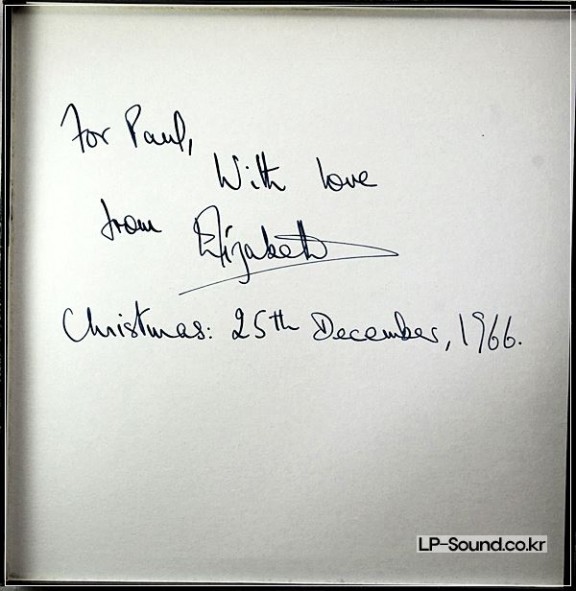 For Paul,
With love
from Elizabeth
Christmas: 25th December, 1966.
LP-Sound.co.kr